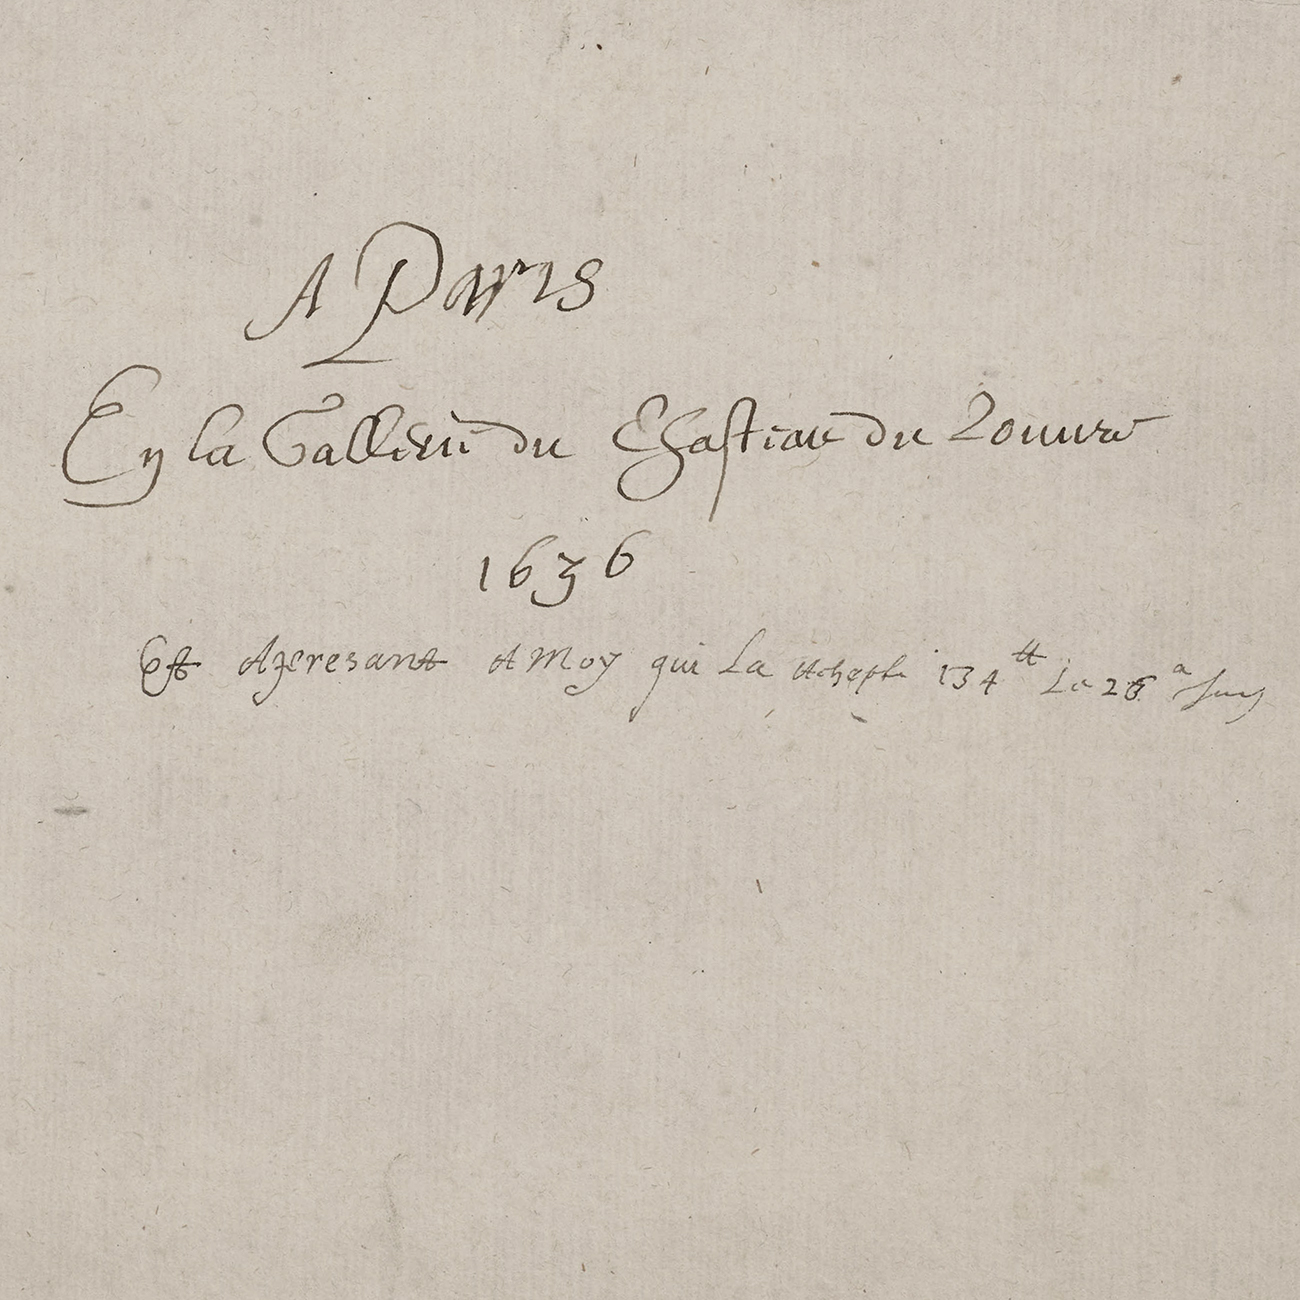 A Paris
En la Gallerie du Chasteau du Louure
1636
Et Apresant A Moy qui La Achepte 134 tt Le 26